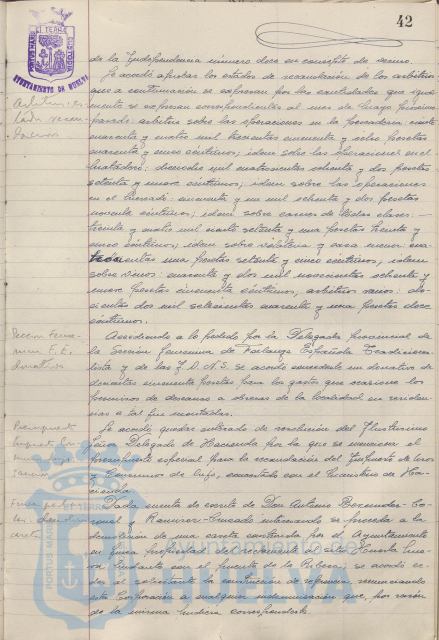 42
AYUNTAMIENTO DE HUELVA
de la Independencia número doce en concepto de
Se acordó aprobar los estados de recaudación de los arbitrios
que a continuación se expresan por las cantidades que igual-
mente se expresan correspondientes al mes de Mayo próximo
pasado: arbitrio sobre las operaciones en la pescadería ciento
cuarenta y cuatro mil trescientas cincuenta y ocho pesetas
cuarenta y cinco céntimos; idem sobre las operaciones en el
Matadero: dieciocho mil cuatrocientas ochenta y dos pesetas
setenta y nueve céntimos; idem sobre las operaciones
en el Mercado: cincuenta y un mil ochenta y dos pesetas
noventa céntimos; idem sobre carnes de todas clases:
treinta y cuatro mil ciento setenta y una pesetas treinta y
cinco céntimos; idem sobre volatería y caza menor
una pesetas setenta y cinco céntimos, idem
sobre vinos: cuarenta y dos mil novecientas ochenta y
nueve pesetas cincuenta céntimos, arbitrios varios: dos-
cientas dos mil setecientas cuarenta y una pesetas doce
céntimos.
Sección Feme-
nina F. E.
donativo
Accediendo a lo pedido por la Delegada provincial de
la Sección femenina de Falange Española Tradiciona-
lista y de las J.O.N.S. se acordó concederle un donativo de
doscientas cincuenta pesetas para los gastos que ocasione los
permisos de descanso a obreras de la localidad en residen-
cias a tal fin montadas.
Presupuesto
Se acordó quedar enterado de resolución del Ilustrísimo
Señor Delegado de Hacienda por la que se
presupuesto especial para la recaudación del Impuesto de Usos
y Consumos de Lujo, concertado con el Ministerio de Ha-
cienda.
Dada cuenta de escrito de Don Antonio
y Ramírez-Cruzado interesando se proceda a la
demolición de una caseta construida por el Ayuntamiento
en finca propiedad del recurrente al sitio Huerta
lindante con el puente de la Ribera; se acordó ce-
der al solicitante la construcción de referencia renunciando
esta Corporación a cualquier indemnización que, por razón
de la misma pudiera corresponderle.
Ayuntamiento de
HUELVA